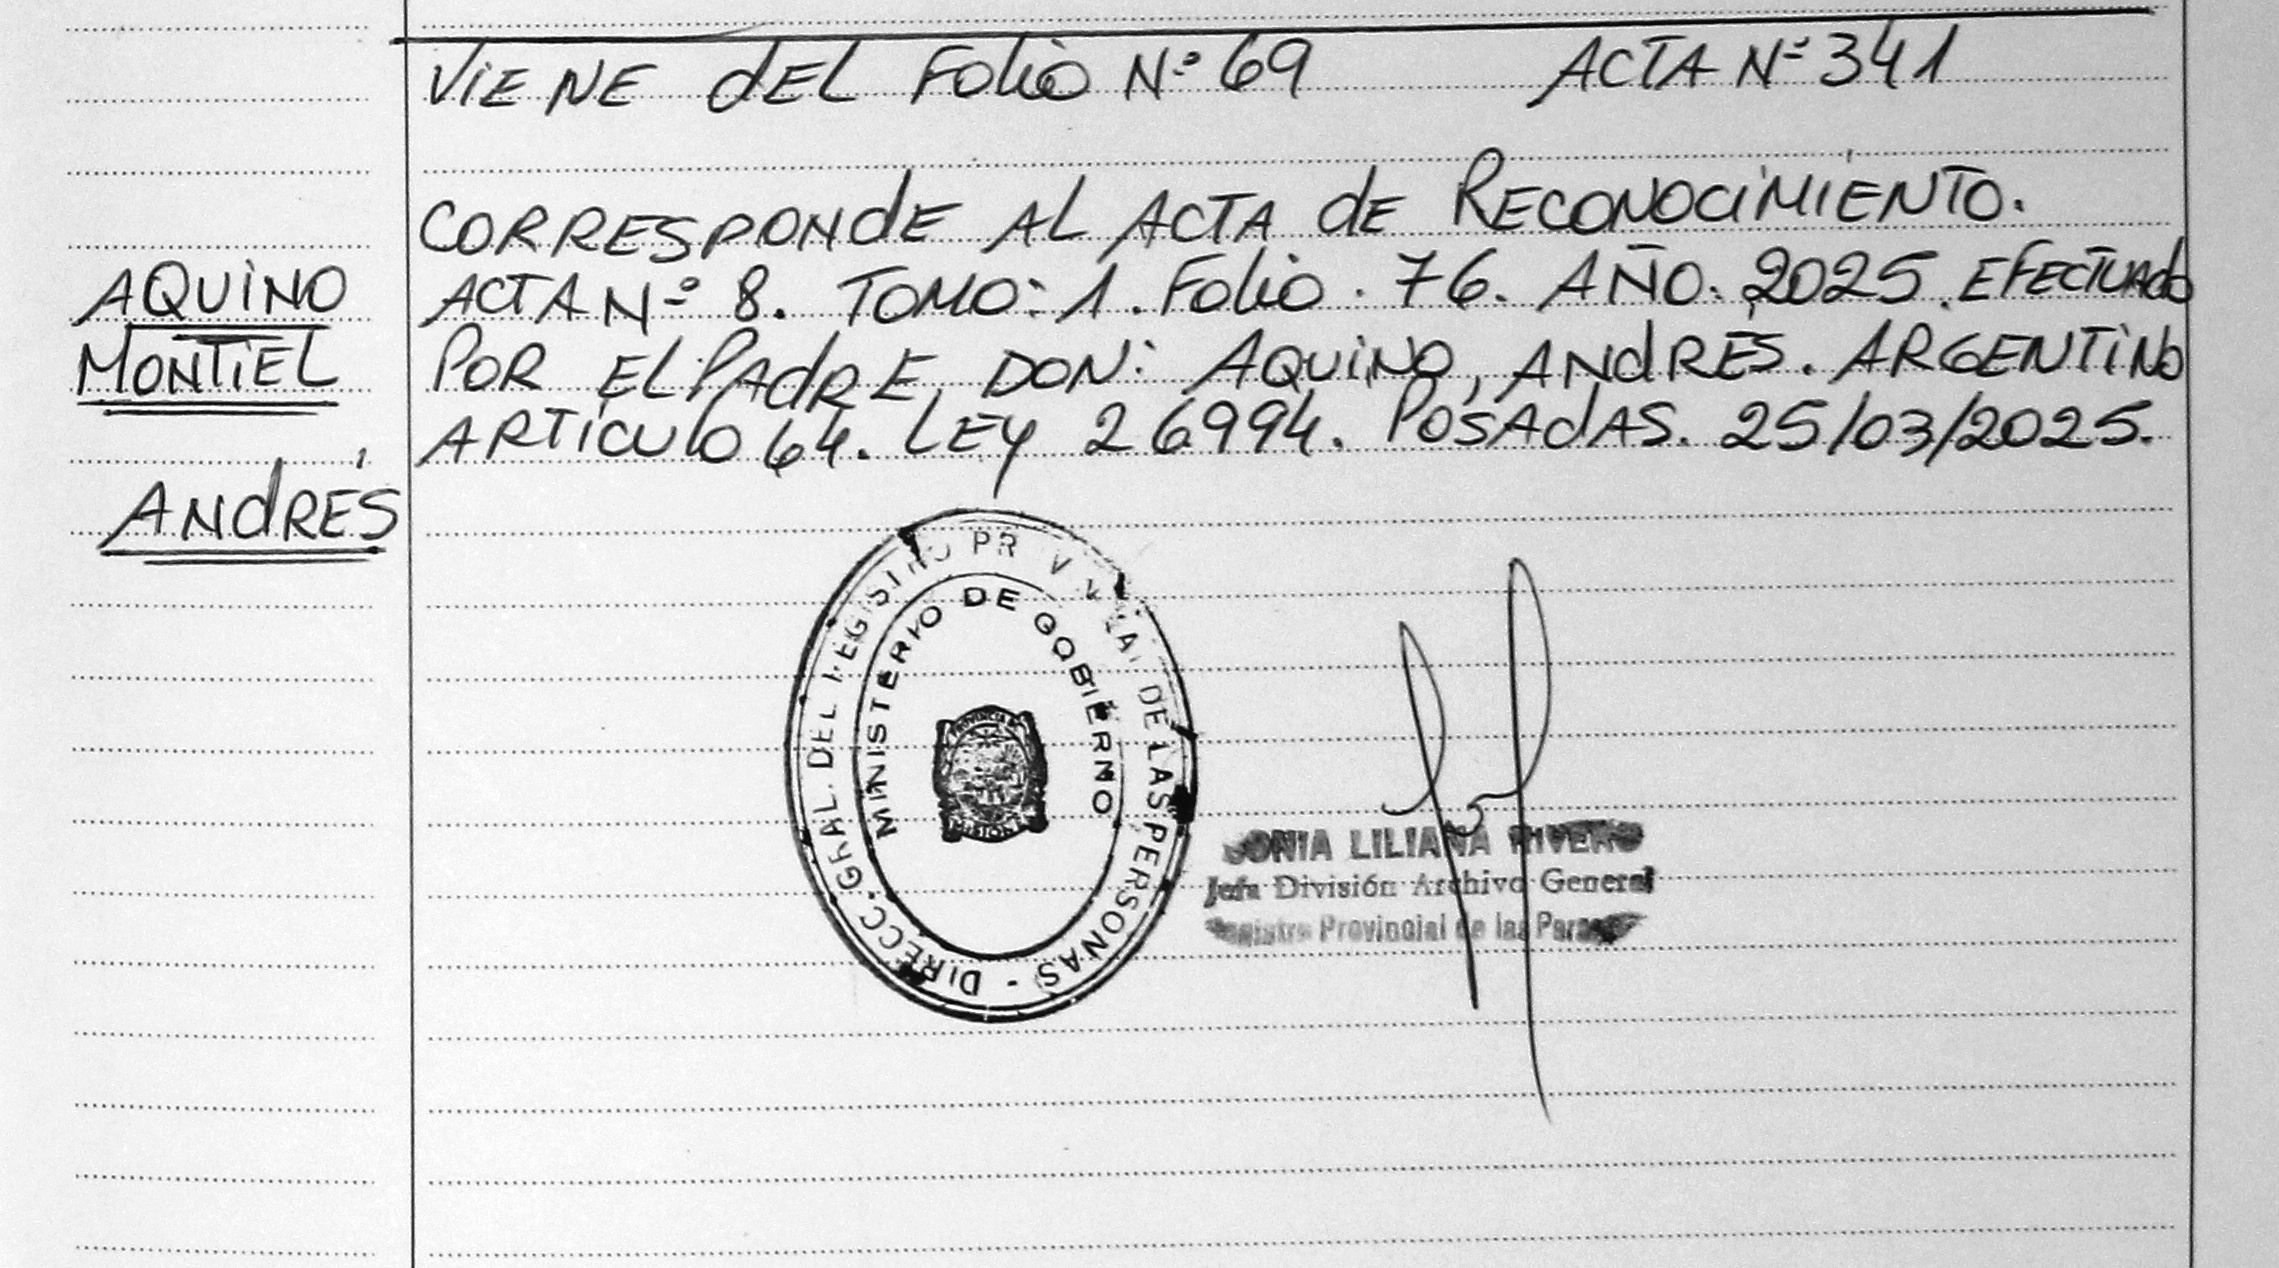 VIENE DEL FOLIO Nº 69 ACTA Nº 341
CORRESPONDE AL ACTA DE RECONOCIMIENTO.
AQUINO ACTA Nº 8. TOMO: 1. FOLIO. 76. AÑO. 2025. EFECTUADO
MONTIEL POR EL PADRE, DON: AQUINO, ANDRÉS. ARGENTINO
ARTÍCULO 64. LEY 26994. POSADAS. 25/03/2025.
ANDRÉS
DIRECC. GRAL. DEL REGISTRO DE LAS PERSONAS -
MINISTERIO DE GOBIERNO
PROVINCIA DE
MISIONES
SONIA LILIANA RIVERO
Jefa División Archivo General
Registro Provincial de las Personas